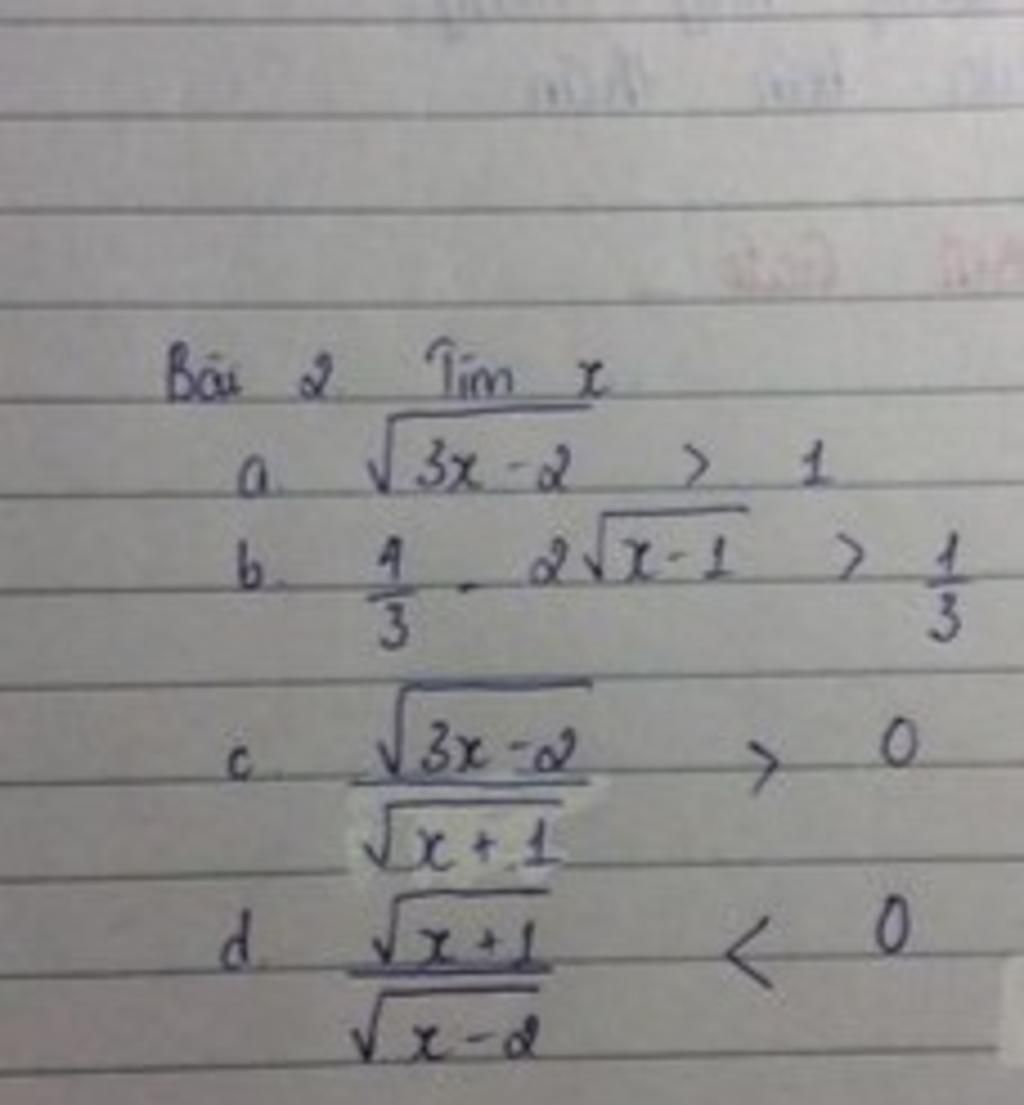 Bài 2 Tìm x
a. √(3x - 2) > 1
b. 4/3 - 2√(x - 1) > 1/3
c. √(3x - 2) / √(x + 1) > 0
d. √(x + 1) / √(x - 2) < 0